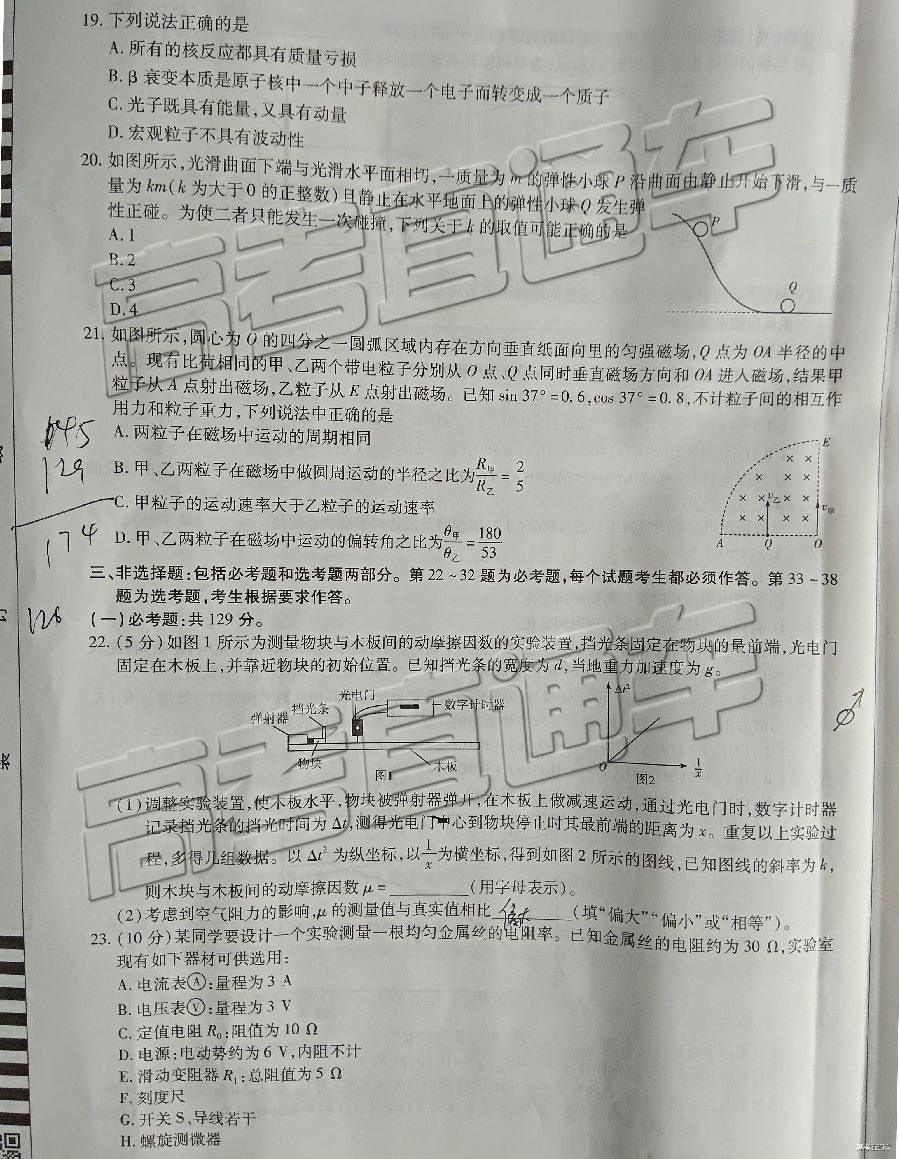 19. 下列说法正确的是
A. 所有的核反应都具有质量亏损
B. β 衰变本质是原子核中一个中子释放一个电子而转变成一个质子
C. 光子既具有能量,又具有动量
D. 宏观粒子不具有波动性
20. 如图所示,光滑曲面下端与光滑水平面相切,一质量为 m 的弹性小球 P 沿曲面由静止开始下滑,与一质
量为 km(k 为大于 0 的正整数)且静止在水平地面上的弹性小球 Q 发生弹
性正碰。为使二者只能发生一次碰撞,下列关于 k 的取值可能正确的是
A. 1
B. 2
C. 3
D. 4
P
Q
21. 如图所示,圆心为 O 的四分之一圆弧区域内存在方向垂直纸面向里的匀强磁场,Q 点为 OA 半径的中
点。现有比荷相同的甲、乙两个带电粒子分别从 O 点、Q 点同时垂直磁场方向和 OA 进入磁场,结果甲
粒子从 A 点射出磁场,乙粒子从 E 点射出磁场。已知 sin 37° = 0.6, cos 37° = 0.8,不计粒子间的相互作
用力和粒子重力,下列说法中正确的是
A. 两粒子在磁场中运动的周期相同
B. 甲、乙两粒子在磁场中做圆周运动的半径之比为 R甲/R乙 = 2/5
C. 甲粒子的运动速率大于乙粒子的运动速率
D. 甲、乙两粒子在磁场中运动的偏转角之比为 θ甲/θ乙 = 180/53
E
v乙
v甲
A Q O
129
174
126
三、非选择题:包括必考题和选考题两部分。第 22～32 题为必考题,每个试题考生都必须作答。第 33～38
题为选考题,考生根据要求作答。
(一)必考题:共 129 分。
22. (5 分)如图 1 所示为测量物块与木板间的动摩擦因数的实验装置,挡光条固定在物块的最前端,光电门
固定在木板上,并靠近物块的初始位置。已知挡光条的宽度为 d,当地重力加速度为 g。
弹射器 挡光条 光电门 数字计时器
物块 木板
图1
Δt²
O
1/x
图2
(1)调整实验装置,使木板水平,物块被弹射器弹开,在木板上做减速运动,通过光电门时,数字计时器
记录挡光条的挡光时间为 Δt,测得光电门中心到物块停止时其最前端的距离为 x。重复以上实验过
程,多得几组数据。以 Δt² 为纵坐标,以 1/x 为横坐标,得到如图 2 所示的图线,已知图线的斜率为 k,
则木块与木板间的动摩擦因数 μ = ________ (用字母表示)。
(2)考虑到空气阻力的影响,μ 的测量值与真实值相比 偏大 (填“偏大”“偏小”或“相等”)。
23. (10 分)某同学要设计一个实验测量一根均匀金属丝的电阻率。已知金属丝的电阻约为 30 Ω,实验室
现有如下器材可供选用:
A. 电流表Ⓐ:量程为 3 A
B. 电压表Ⓥ:量程为 3 V
C. 定值电阻 R₀:阻值为 10 Ω
D. 电源:电动势约为 6 V,内阻不计
E. 滑动变阻器 R₁:总阻值为 5 Ω
F. 刻度尺
G. 开关 S、导线若干
H. 螺旋测微器
高考直通车
高考直通车